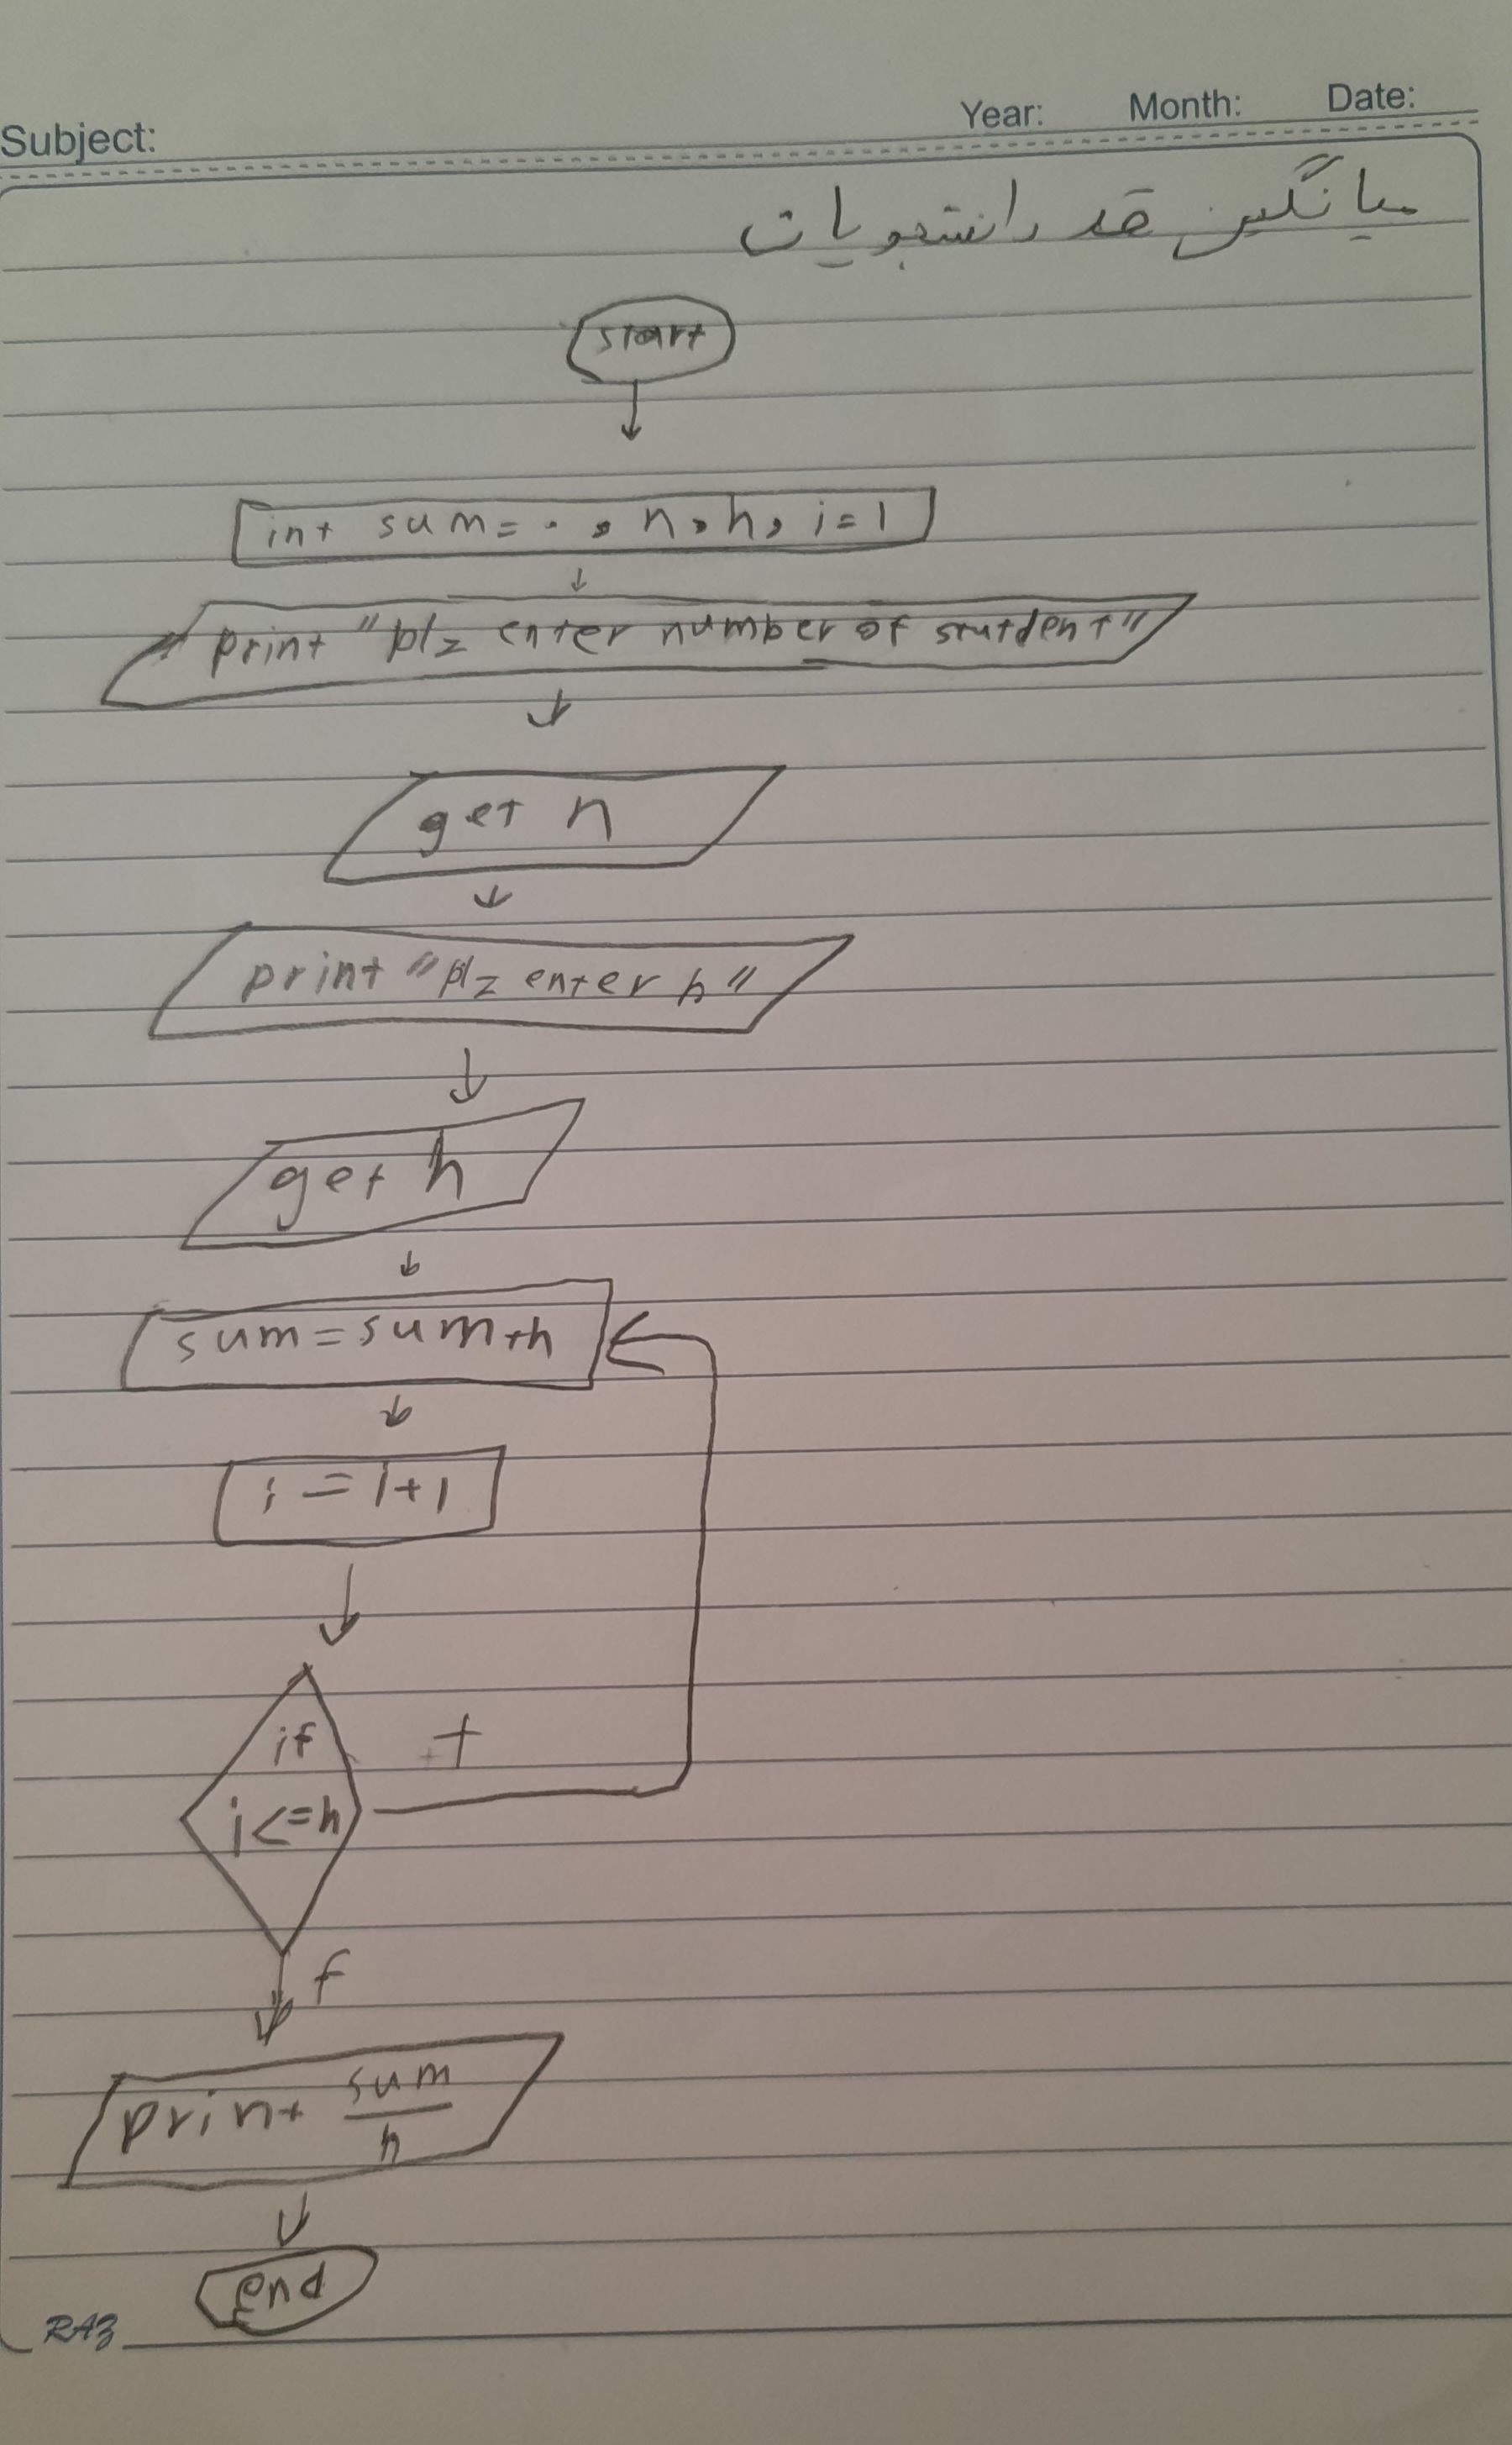 Subject:
Year: Month: Date:
میانگین قد دانشجویان
start
int sum = ۰ , n , h , i = 1
print "plz enter number of statdent"
get n
print "plz enter h"
get h
sum = sum + h
i = i + 1
if
i <= n
t
f
print sum
n
end
RAZ